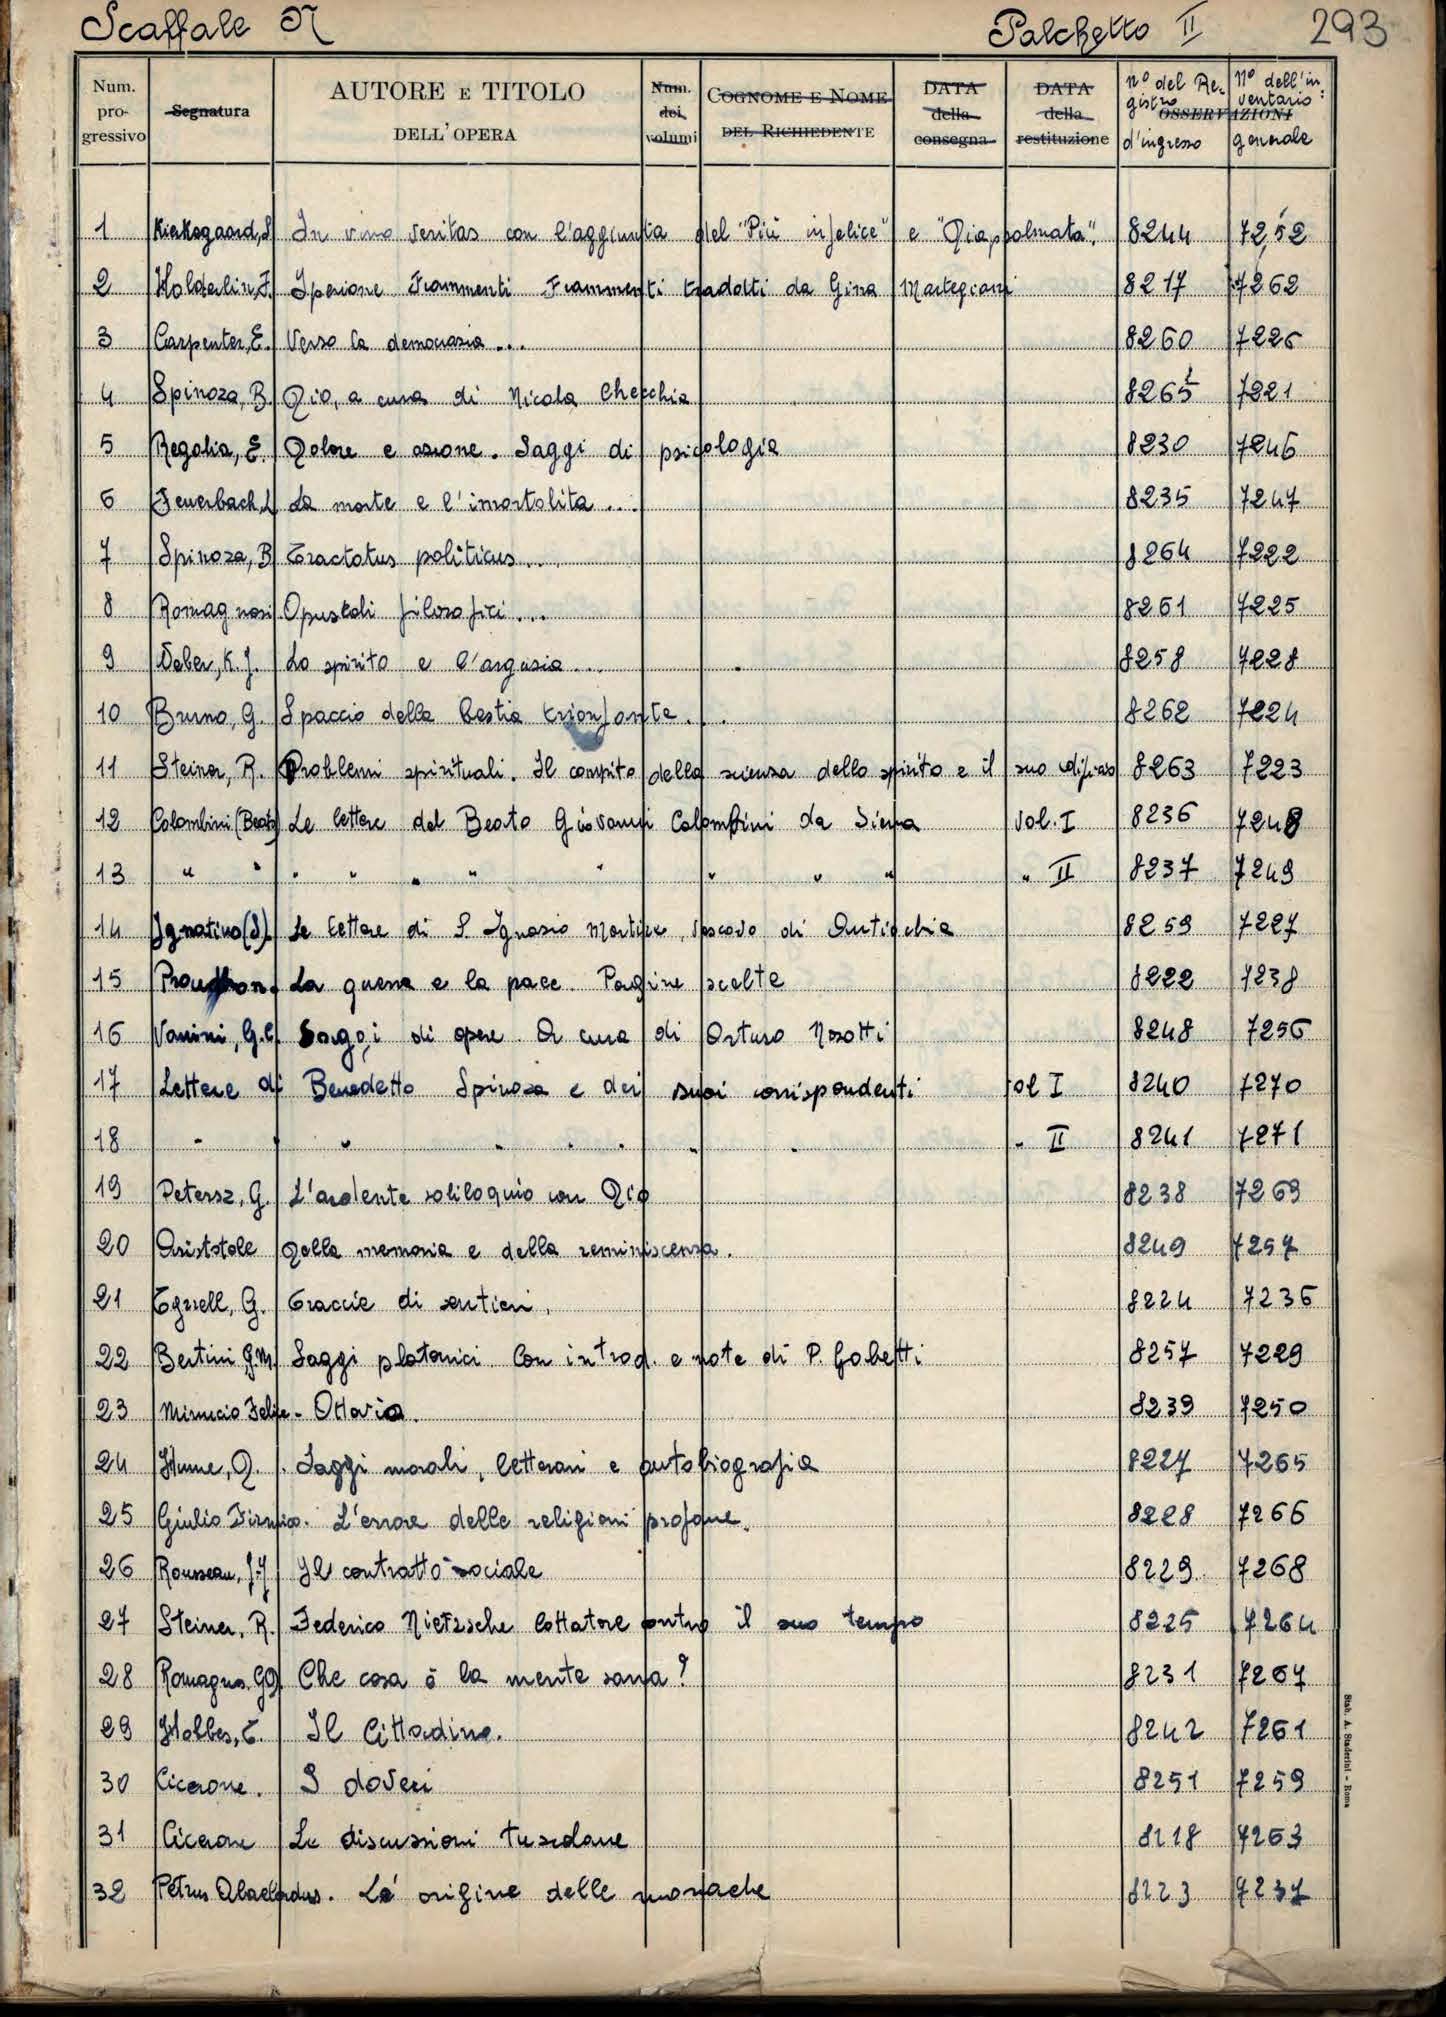 Scaffale N Palchetto II 293
Num. progressivo Segnatura AUTORE E TITOLO DELL'OPERA Num. dei volumi COGNOME E NOME DEL RICHIEDENTE DATA della consegna DATA della restituzione OSSERVAZIONI n° del Registro d'ingresso N° dell'inventario generale
1 Kierkegaard, S In vino veritas con l'aggiunta del "Più infelice" e "Diapsalmata". 8244 7252
2 Holderlin, F. Iperione Frammenti Frammenti tradotti da Gina Martegiani 8217 7262
3 Carpenter, E. Verso la democrazia ... 8260 7226
4 Spinoza, B. Dio, a cura di Nicola Checchia 8265 7221
5 Regalia, E. Dolore e azione. Saggi di psicologia 8230 7246
6 Feuerbach, L La morte e l'imortalita ... 8235 7247
7 Spinoza, B Tractatus politicus ... 8264 7222
8 Romagnosi Opuscoli filosofici ... 8261 7225
9 Weber, K. J. Lo spirito e l'arguzia ... 8258 7228
10 Bruno, G. Spaccio della bestia trionfante ... 8262 7224
11 Steiner, R. Problemi spirituali. Il compito della scienza dello spirito e il suo edificio 8263 7223
12 Colombini (Beato) Le lettere del Beato Giovanni Colombini da Siena vol. I 8236 7248
13 " " " " " " " " " " " II 8237 7249
14 Ignatius (S). Le lettere di S. Ignazio Martire, Vescovo di Antiochia 8259 7227
15 Proudhon. La guerra e la pace. Pagine scelte 8222 7238
16 Vanini, G.C. Saggi di opere. A cura di Arturo Nosotti 8248 7256
17 Lettere di Benedetto Spinoza e dei suoi corrispondenti vol I 8240 7270
18 " " " " " " " " " II 8241 7271
19 Petersz, G. L'ardente soliloquio con Dio 8238 7269
20 Aristotele Della memoria e della reminiscenza. 8249 7257
21 Tyrrell, G. Traccie di sentieri. 8224 7236
22 Bertini G.M. Saggi platonici Con introd. e note di P. Gobetti 8257 7229
23 Minucio Felice - Ottavio. 8239 7250
24 Hume, D. Saggi morali, letterari e autobiografia 8227 7265
25 Giulio Firmico. L'errore delle religioni profane. 8228 7266
26 Rousseau, J.J Il contratto sociale 8229 7268
27 Steiner, R. Federico Nietzsche lottatore contro il suo tempo 8225 7264
28 Romagnos. GD. Che cosa è la mente sana? 8231 7267
29 Hobbes, T. Il Cittadino. 8242 7261
30 Cicerone. I doveri 8251 7259
31 Cicerone Le discussioni tusculane 8218 7263
32 Petrus Abaelardus. Le origine delle monache 8223 7237
Stab. A. Staderini - Roma